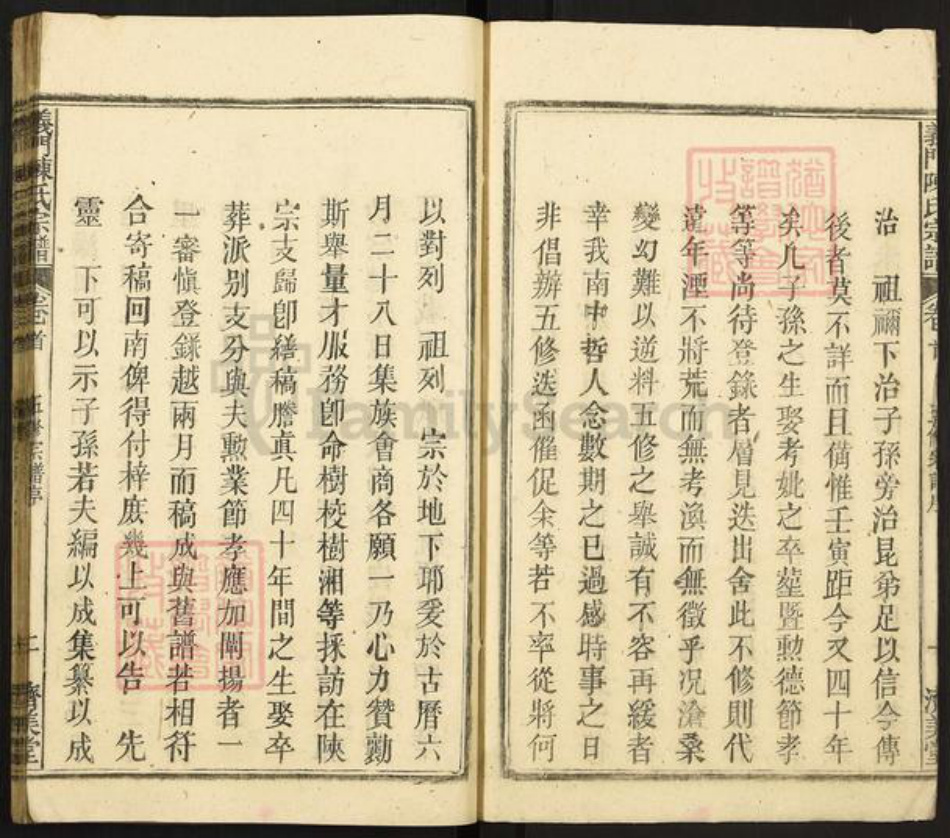 治　祖禰下治子孫旁治昆弟足以信今傳
後者莫不詳而且備惟壬寅距今又四十年
矣凡子孫之生娶考妣之卒塟暨勲德節孝
等等尚待登錄者層見迭出舍此不修則代
遠年湮不將荒而無考渙而無徵乎况滄桑
變幻難以逆料五修之舉誠有不容再緩者
幸我南中哲人念數期之已過感時事之日
非倡辦五修迭函催促余等若不率從將何
以對列　祖列　宗於地下耶爰於古曆六
月二十八日集族會商各願一乃心力贊勷
斯舉量才服務卽命樹校樹湘等採訪在陝
宗支歸卽繕稿謄真凡四十年間之生娶卒
葬派别支分與夫勲業節孝應加闡揚者一
一審愼登錄越兩月而稿成與舊譜若相符
合寄稿回南俾得付梓庶幾上可以告　先
靈　下可以示子孫若夫編以成集纂以成
義門陳氏宗譜
卷首
五修宗譜序
二
濟美堂
FamilySearch